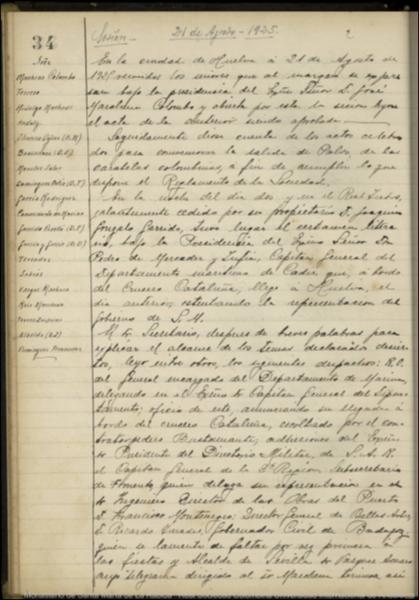 34
Sesión
21 de Agosto - 1925.
2
Marchena Colombo
Terrero
Hidalgo Machado
Morales
Dominguez
Garcia Rodriguez
Comandante de Marina
Garrido Perelló
Garcia y Garcia
Terrades
Vargas Machuca
Ruiz Marchena
Albelda
Dominguez
En la ciudad de Huelva a 21 de Agosto de
1925 reunidos los señores que al margen se expre
san bajo la presidencia del Excmo Señor D. José
Marchena Colombo y abierta por este la sesión leyose
el acta de la anterior siendo aprobada
Seguidamente diose cuenta de los actos celebra
dos para conmemorar la salida de Palos de las
carabelas colombinas, a fin de cumplir lo que
dispone el Reglamento de la Sociedad.
En la noche del dia 2 y en el Real Teatro,
galantemente cedido por su propietario D. Joaquin
Gonzalo Garrido, tuvo lugar el certamen litera
rio, bajo la Presidencia del Excmo Señor Don
Pedro de Mercader y Zufia, Capitan General del
Departamento maritimo de Cadiz que, a bordo
del Crucero Cataluña, llegó a Huelva, el
dia anterior, ostentando la representacion del
Gobierno de S. M.
El Sr. Secretario, despues de breves palabras para
explicar el alcance de los temas declarados desier
tos, leyo entre otros, los siguientes despachos: R.O.
del General encargado del Departamento de Marina,
delegando en el Excmo Sr Capitan General del Depar
tamento; oficio de este, anunciando su llegada a
bordo del crucero Cataluña, escoltado por el con
tratorpedero Bustamante; adhesiones del Excmo
Sr Presidente del Directorio Militar, de S. A. R.
el Capitan General de la 2ª Region, Subsecretario
de Fomento, quien delega su representacion en el
Sr Ingeniero Director de las Obras del Puerto
D. Francisco Montenegro; Director General de Bellas Artes,
D. Ricardo Gobernador Civil de Badajoz
quien se lamenta de faltar por vez primera a
las fiestas y Alcalde de Sevilla Sr Vazquez Armero
cuyo telegrama dirigido al Sr Marchena termina asi